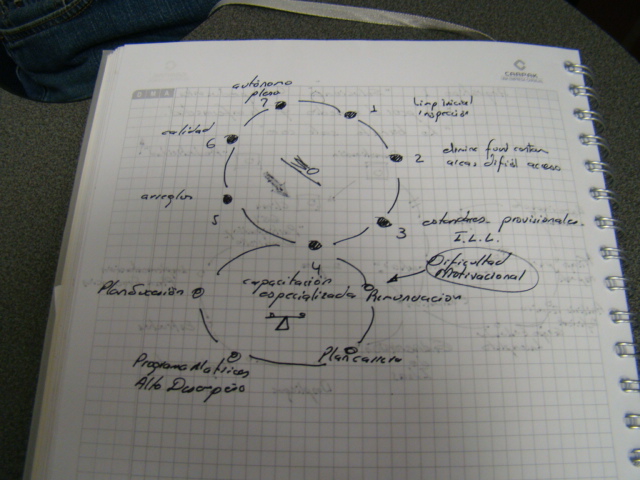 CARPAK
autónomo
pleno
7
1
Limp inicial
inspección
calidad
6
2
elimine fuent contam
areas difícil acceso
MO
arreglos
5
3
estandares provisionales.
I.L.L.
4
Dificultad
Motivacional
capacitación
especializada
Plan Sucesión
Remuneración
Plan carrera
Programa Matrices
Alto Desempeño